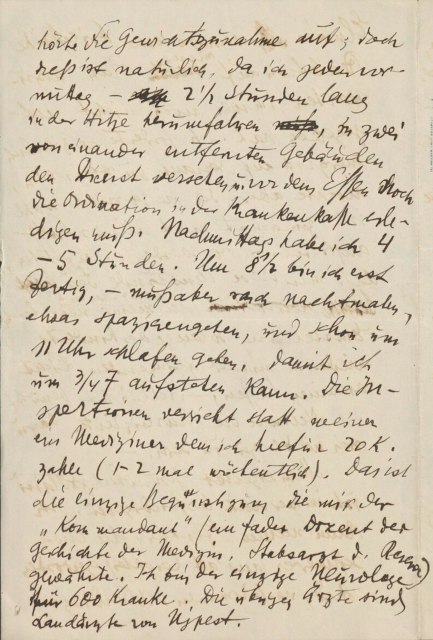 hörte die Gewichtszunahme auf; doch
dieß ist natürlich, da ich jeden vor-
mittag – 2 1/2 Stunden lang
in der Hitze herumfahren, in zwei
von einander entfernten Gebäuden
den Dienst versehen u. vor dem Essen noch
die Ordination in der Krankenkasse erle-
digen muß. Nachmittags habe ich 4
– 5 Stunden. Um 8 1/2 bin ich erst
fertig, – muß aber noch nachtmalen,
etwas spazierengehen, und schon um
11 Uhr schlafen gehen, damit ich
um 3/4 7 aufstehen kann. Die In-
spektionen versieht statt meiner
ein Mediziner dem ich hiefür 20 K.
zahle (1–2 mal wöchentlich). Das ist
die einzige Begünstigung die mir der
„Kommandant" (ein fader Dozent der
Geschichte der Medizin, Stabsarzt d. Reserve)
gewährte. Ich bin der einzige Neurologe
für 600 Kranke. Die übrigen Ärzte sind
Landärzte von Ujpest.